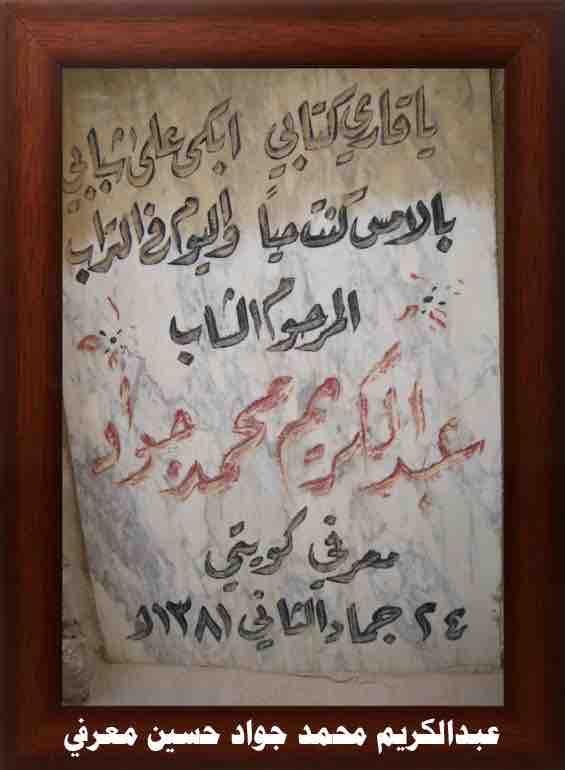 يا قاري كتابي ابكي على شبابي
بالامس كنت حياً واليوم في التراب
المرحوم الشاب
عبدالكريم محمد جواد
معرفي كويتي
٢٤ جماد الثاني ١٣٨١ه
عبدالكريم محمد جواد حسين معرفي